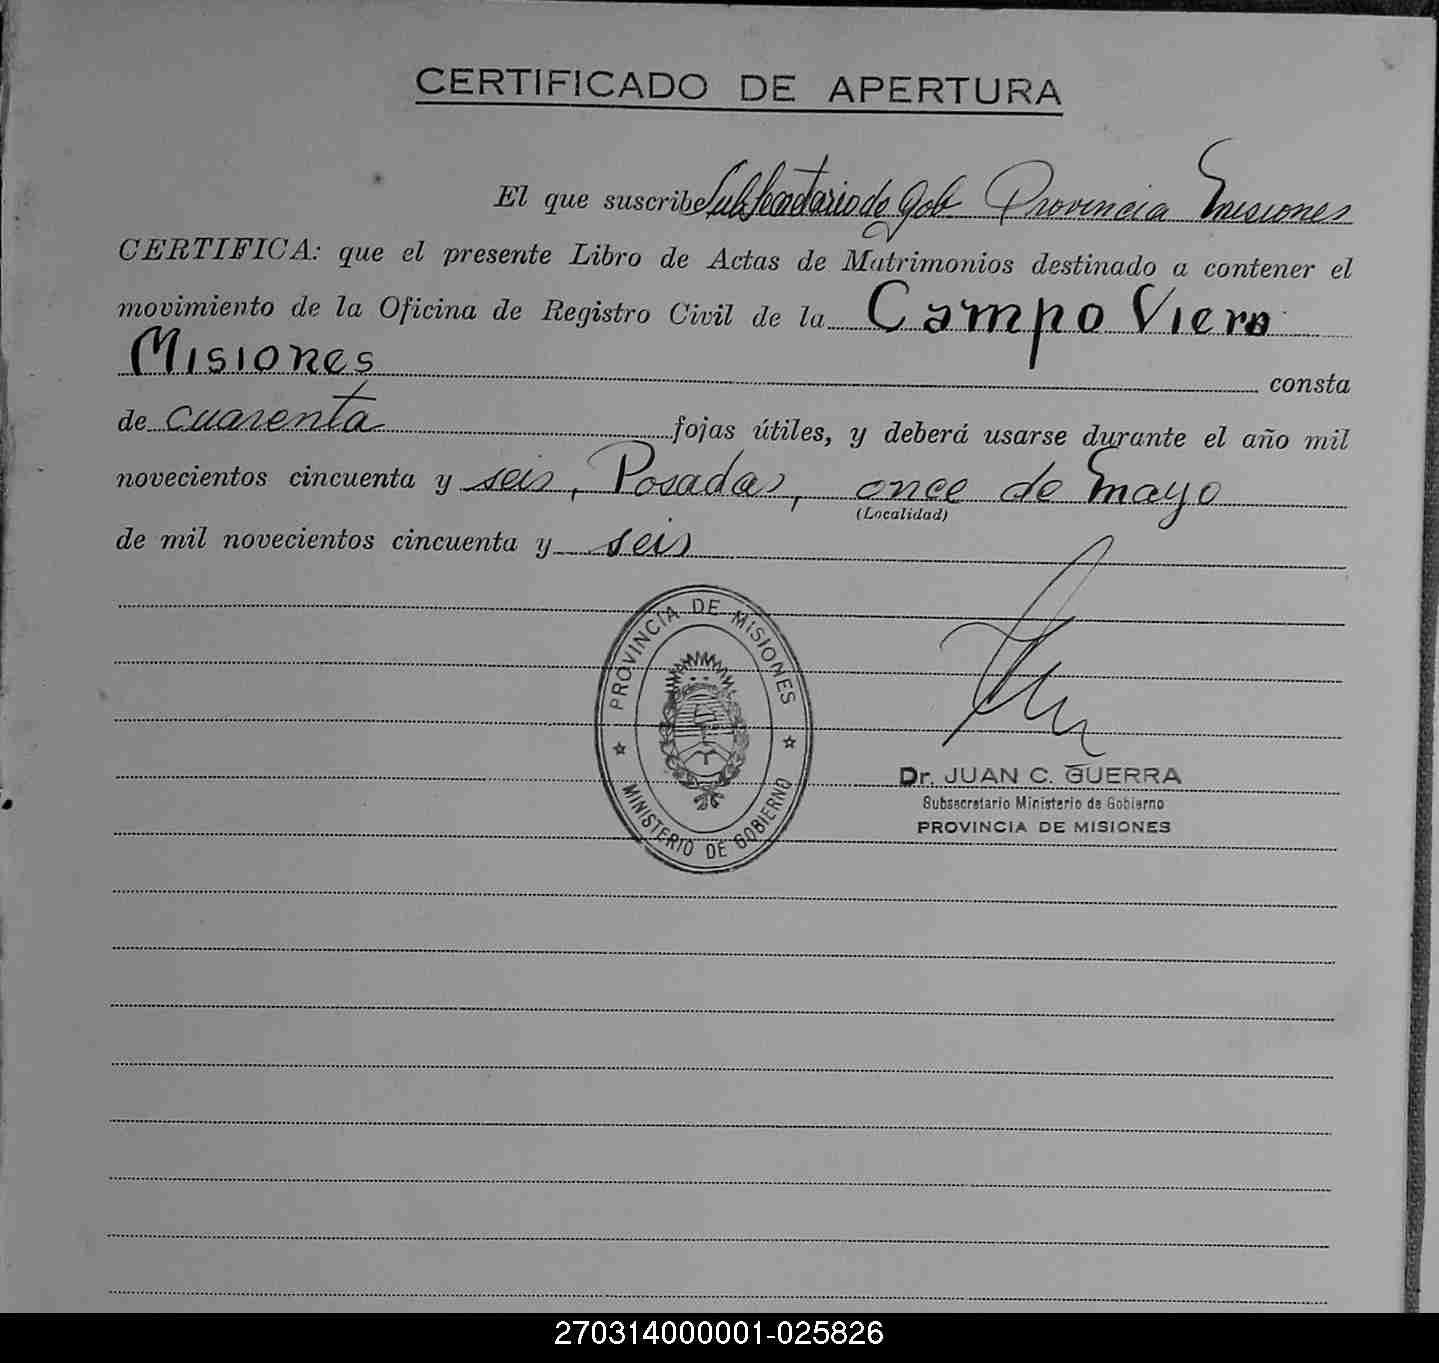 CERTIFICADO DE APERTURA
El que suscribe Subsecretario de Gob. Provincia Misiones
CERTIFICA: que el presente Libro de Actas de Matrimonios destinado a contener el
movimiento de la Oficina de Registro Civil de la Campo Viera
Misiones consta
de cuarenta fojas útiles, y deberá usarse durante el año mil
novecientos cincuenta y seis, Posadas, once de mayo
(Localidad)
de mil novecientos cincuenta y seis
PROVINCIA DE MISIONES
MINISTERIO DE GOBIERNO
Dr. JUAN C. GUERRA
Subsecretario Ministerio de Gobierno
PROVINCIA DE MISIONES
270314000001-025826